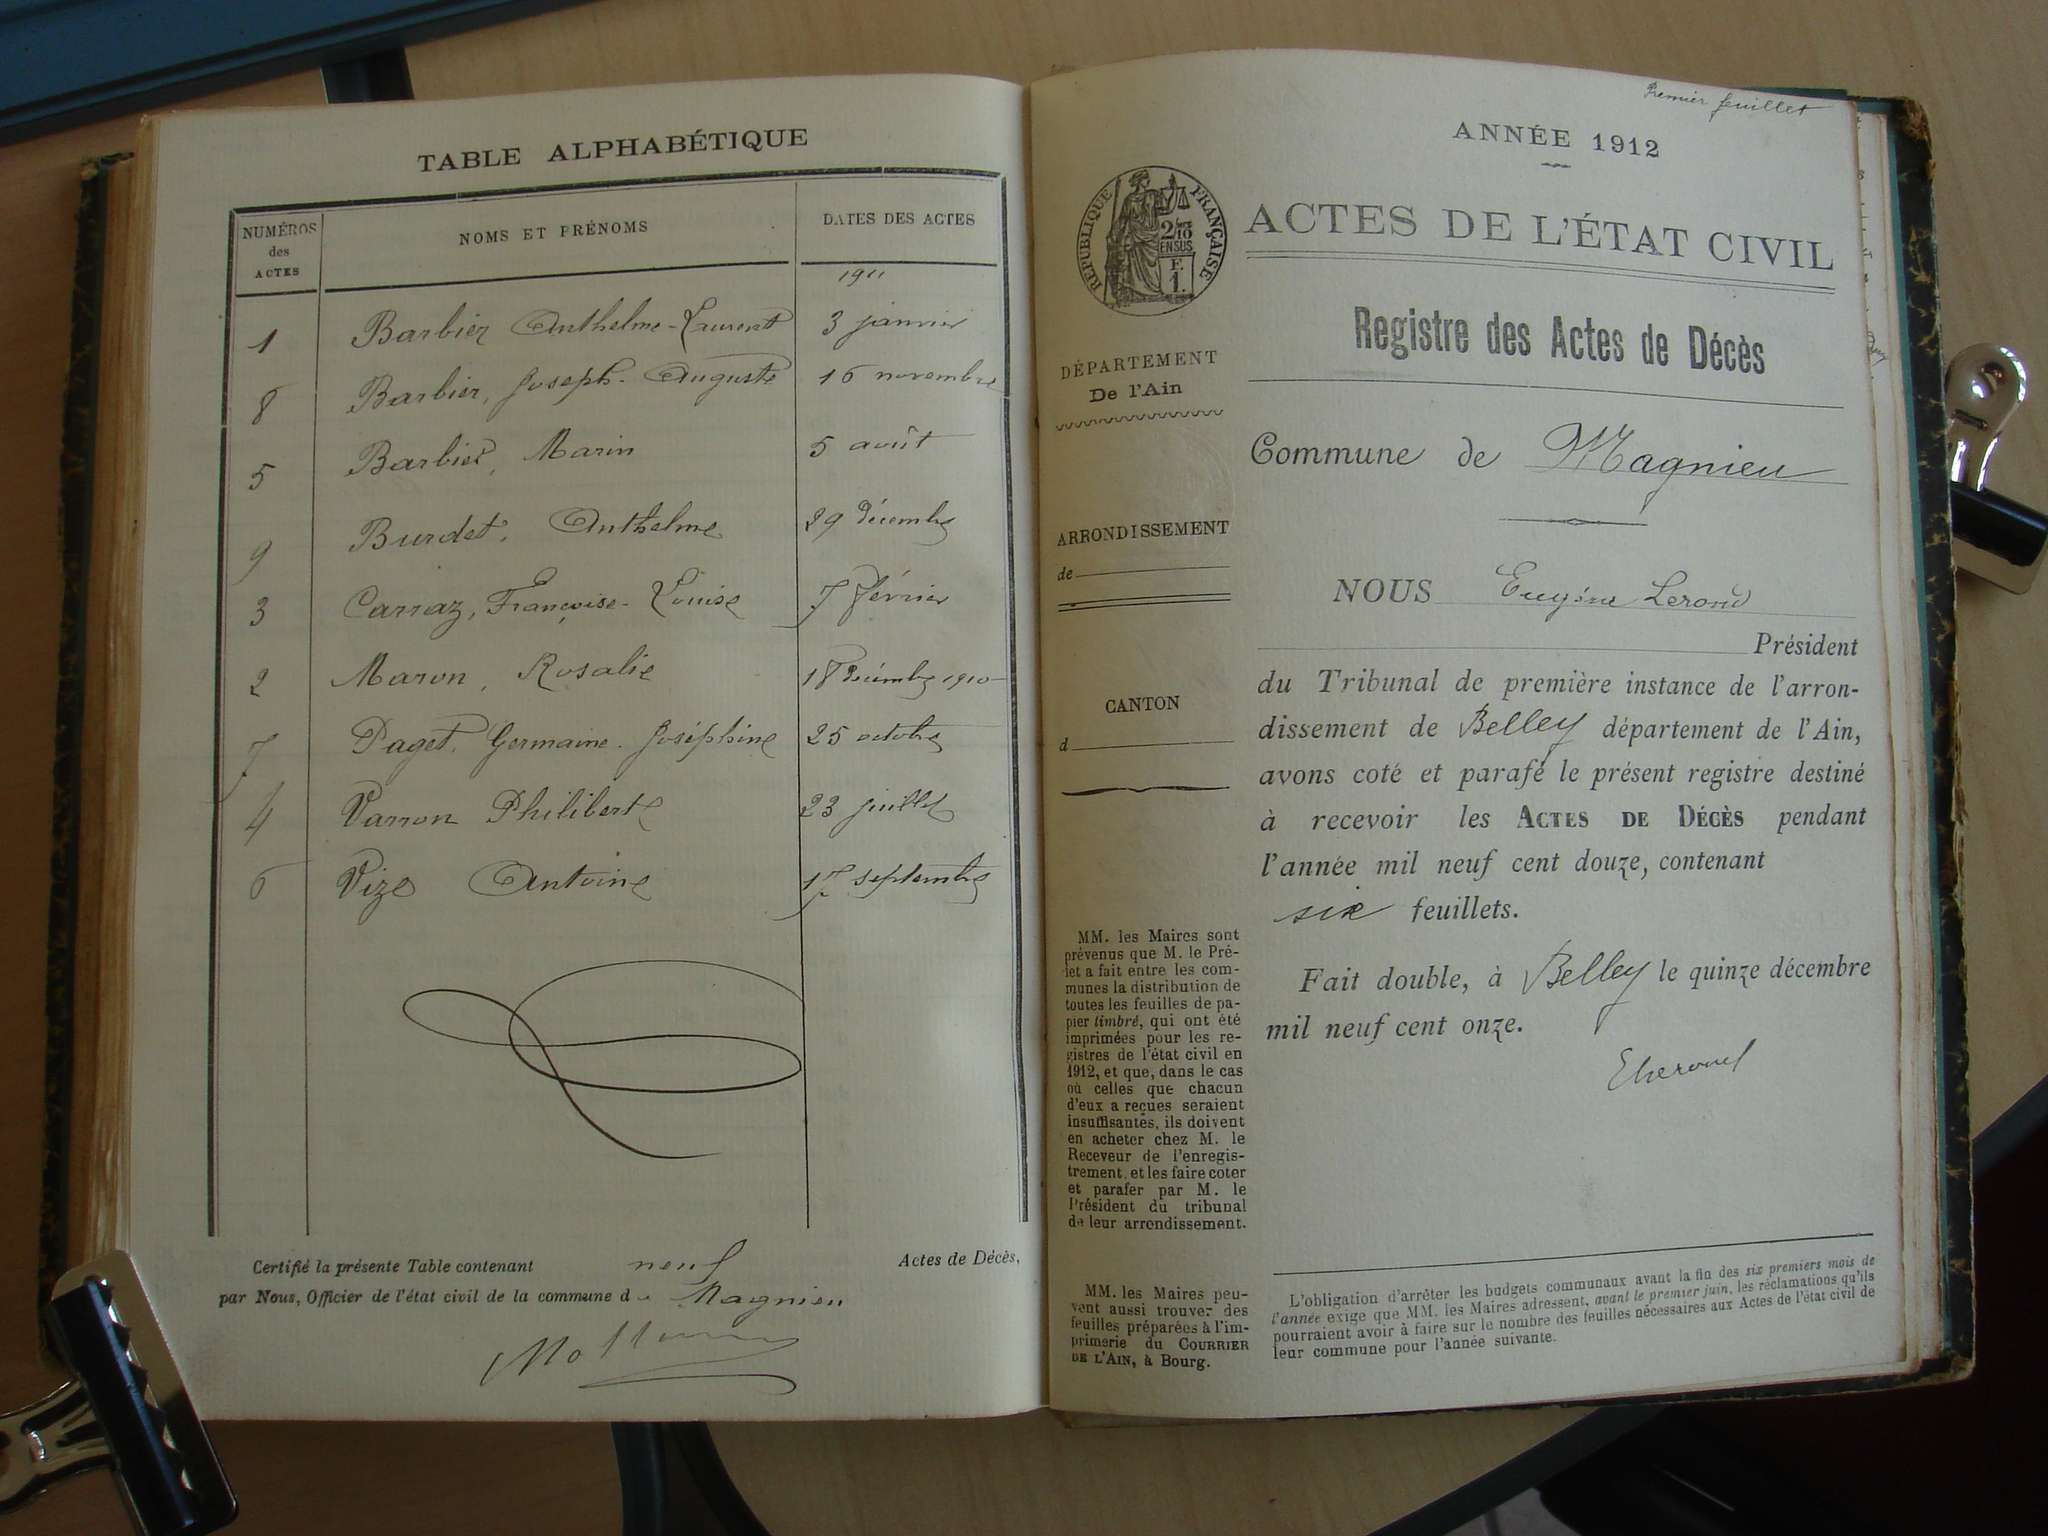 TABLE ALPHABÉTIQUE
NUMÉROS des ACTES
NOMS ET PRÉNOMS
DATES DES ACTES
1911
1 Barbier Anthelme-Laurent 3 janvier
8 Barbier, Joseph-Auguste 16 novembre
5 Barbier, Marin 5 août
9 Burdet, Anthelme 29 décembre
3 Carraz, Françoise-Louise 7 février
2 Maron, Rosalie 18 décembre 1910
7 Paget, Germaine-Joséphine 25 octobre
4 Varron Philiberte 23 juillet
6 Vize Antoine 17 septembre
Certifié la présente Table contenant neuf Actes de Décès,
par Nous, Officier de l'état civil de la commune de Magnieu
Premier feuillet
ANNÉE 1912
RÉPUBLIQUE FRANÇAISE
2/10
EN SUS
F.
1.
ACTES DE L'ÉTAT CIVIL
Registre des Actes de Décès
DÉPARTEMENT
De l'Ain
Commune de Magnieu
ARRONDISSEMENT
de
CANTON
d
NOUS Eugène Lerond
Président
du Tribunal de première instance de l'arron-
dissement de Belley département de l'Ain,
avons coté et parafé le présent registre destiné
à recevoir les ACTES DE DÉCÈS pendant
l'année mil neuf cent douze, contenant
six feuillets.
Fait double, à Belley le quinze décembre
mil neuf cent onze.
MM. les Maires sont
prévenus que M. le Pré-
fet a fait entre les com-
munes la distribution de
toutes les feuilles de pa-
pier timbré, qui ont été
imprimées pour les re-
gistres de l'état civil en
1912, et que, dans le cas
où celles que chacun
d'eux a reçues seraient
insuffisantes, ils doivent
en acheter chez M. le
Receveur de l'enregis-
trement, et les faire coter
et parafer par M. le
Président du tribunal
de leur arrondissement.
MM. les Maires peu-
vent aussi trouver des
feuilles préparées à l'im-
primerie du COURRIER
DE L'AIN, à Bourg.
L'obligation d'arrêter les budgets communaux avant la fin des six premiers mois de
l'année exige que MM. les Maires adressent, avant le premier juin, les réclamations qu'ils
pourraient avoir à faire sur le nombre des feuilles nécessaires aux Actes de l'état civil de
leur commune pour l'année suivante.